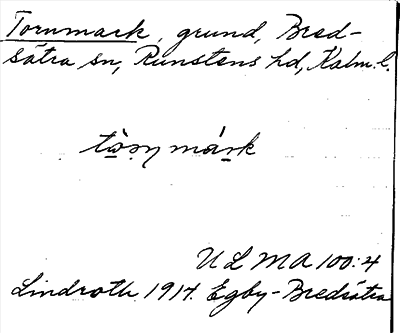 Tornmark, grund, Bred-
sätra sn, Runstens hd, Kalm. l.
tòṇ márk
U L M A 100:4
Lindroth. 1917. Egby-Bredsätra